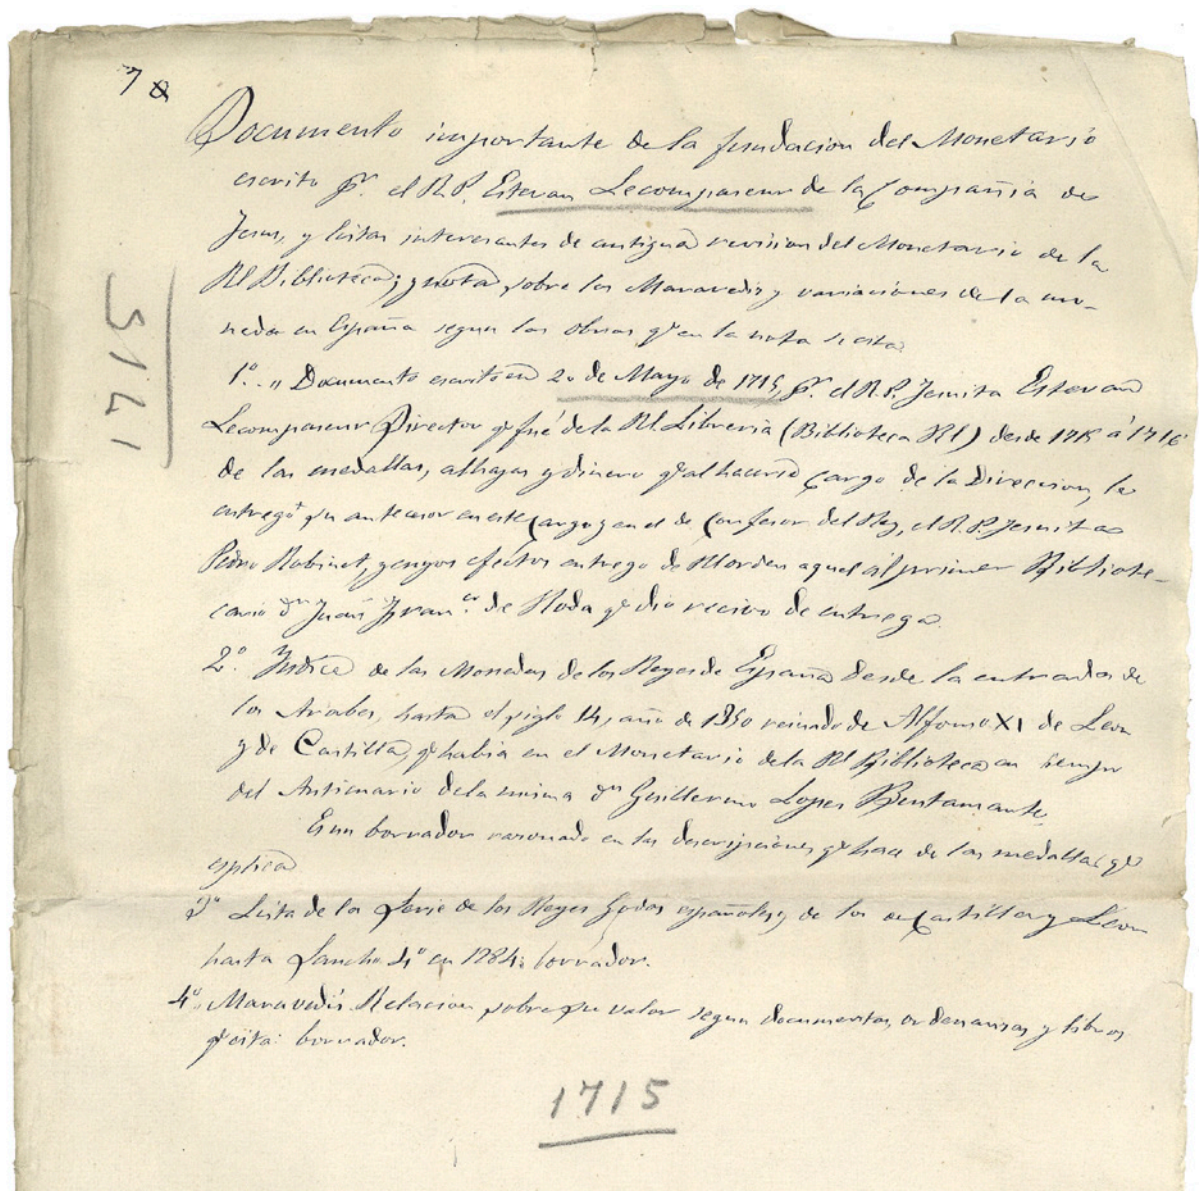 7
Documento importante de la fundacion del Monetario
escrito pr. el R.P. Estevan Lecompaseur de la Compañia de
Jesus, y listas interesantes de antigua revision del Monetario de la
Rl Biblioteca; y nota sobre los Maravedis y variaciones de la mo-
neda en España segun las obras qe en la nota se cita
1º. " Documento escrito en 20 de Mayo de 1715, pr. el R.P. Jesuita Estevan
Lecompaseur Director qe fué de la Rl. Libreria (Biblioteca Rl) desde 1715 á 1716
de las medallas, alhajas y dinero qe al hacerse cargo de la Direccion, le
entregó su antecesor en este cargo y en el de Confesor del Rey, el R.P. Jesuita
Pedro Robinet, y cuyos efectos entrego de Rl orden aquel al primer Bibliote-
cario Dn Juan Franco. de Roda qe dio recivo de entrega.
2º. Yndice de las Monedas de los Reyes de España desde la entrada de
los Arabes, hasta el siglo 14, año de 1350 reinado de Alfonso XI de Leon
y de Castilla, qe habia en el Monetario de la Rl Biblioteca en tiempo
del Anticuario de la misma Dn Guillermo Lopez Bustamante.
Es un borrador razonado en las descripciones qe hace de las medallas qe
esplica
3º Lista de la Serie de los Reyes Godos españoles y de los de Castilla y Leon
hasta Sancho 4º en 1284: borrador.
4º. Maravedis. Relacion sobre su valor segun documentos, ordenanzas y libros
qe cita: borrador.
1715
1715